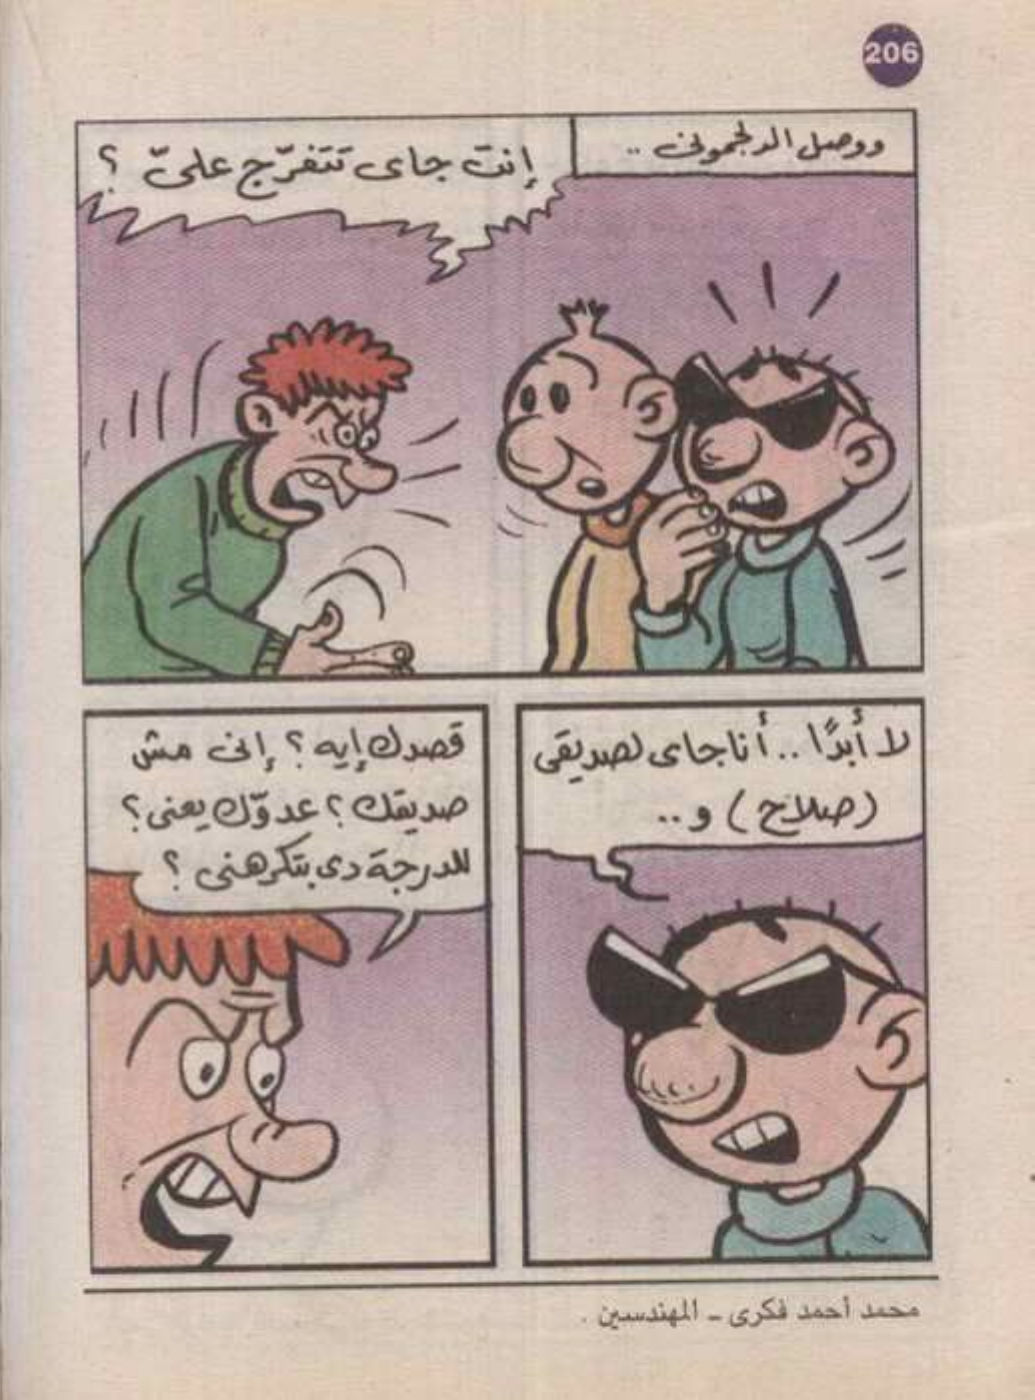 206
ووصل الدلجموني ..
إنت جاى تتفرّج علىّ ؟
لا أبدًا .. أنا جاى لصديقى
(صلاح) و ..
قصدك إيه ؟ إنى مش
صديقك ؟ عدوّك يعنى ؟
للدرجة دى بتكرهنى ؟
محمد أحمد فكرى ـ المهندسين .